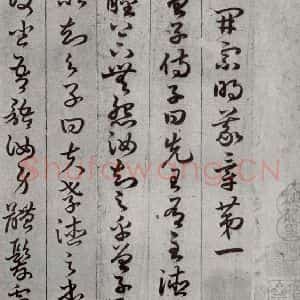 開宗明義章第一
曾子侍子曰先王有至德
睦上下無怨汝知之乎曾子
以知之子曰夫孝德之本
復坐吾語汝身體髮膚
Shufawang.CN